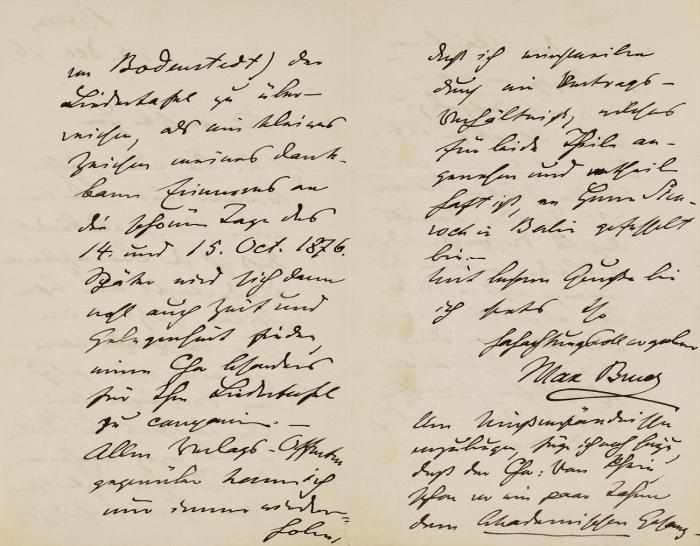 von Bodenstedt) der
Liedertafel zu über-
reichen, als ein kleines
Zeichen meines dank-
baren Erinnerns an
die schönen Tage des
14. und 15. Oct. 1876.
Später wird sich dann
wohl auch Zeit und
Gelegenheit finden,
einen Chor besonders
für Ihre Liedertafel
zu componiren. —
Allen Verlags-Offerten
gegenüber kann ich
nur immer wieder-
holen,
daß ich einstweilen
durch ein Vertrags-
Verhältniß, welches
für beide Theile an-
genehm und vortheil
haft ist, an Herrn Sim-
rock in Berlin gefesselt
bin. —
Mit bestem Gruße bin
ich stets Ihr
hochachtungsvoll ergebener
Max Bruch
Um Mißverständnissen
vorzubeugen, füge ich noch hinzu,
daß der Chor: Vom Rhein
schon vor ein paar Jahren
dem Akademischen Gesang-